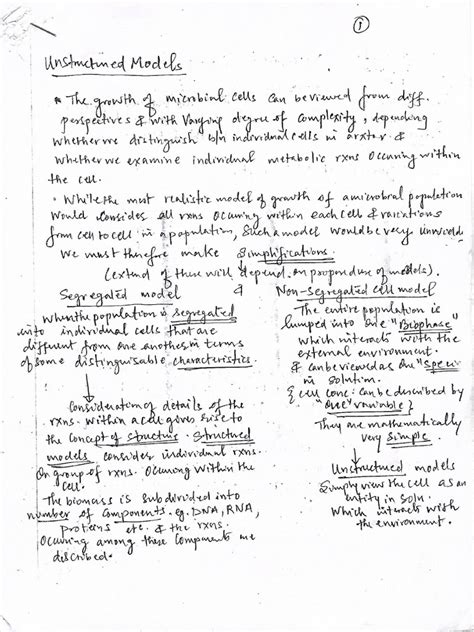 ①
Unstructured Models
* The growth of microbial cells can be viewed from diff.
perspectives & with varying degree of complexity, depending
whether we distinguish b/n individual cells in a rxtor &
whether we examine individual metabolic rxns occuring within
the cell.
• While the most realistic model of growth of a microbial population
would consider all rxns occuring within each cell & variations
from cell to cell in a population, such a model would be very unwieldy
We must therefore make simplifications.
(extend of these will depend on purpose of models).
Segregated model & Non-segregated cell model
When the population is segregated
into individual cells that are
different from one another in terms
of some distinguisable characteristics.
Consideration of details of the
rxns. within a cell gives rise to
the concept of structure. Structured
models considers individual rxns.
or group of rxns. occuring within the
cell.
The biomass is subdivided into
number of components. eg. DNA, RNA,
proteins etc. & the rxns.
occuring among these components are
described.
The entire population is
lumped into one "Biophase"
which interacts with the
external environment.
& can be viewed as one "species"
in solution.
{ cell conc. can be described by
"one" variable }
They are mathematically
very simple.
Unstructured models
Simply view the cell as an
entity in soln.
which interacts with
the environment.